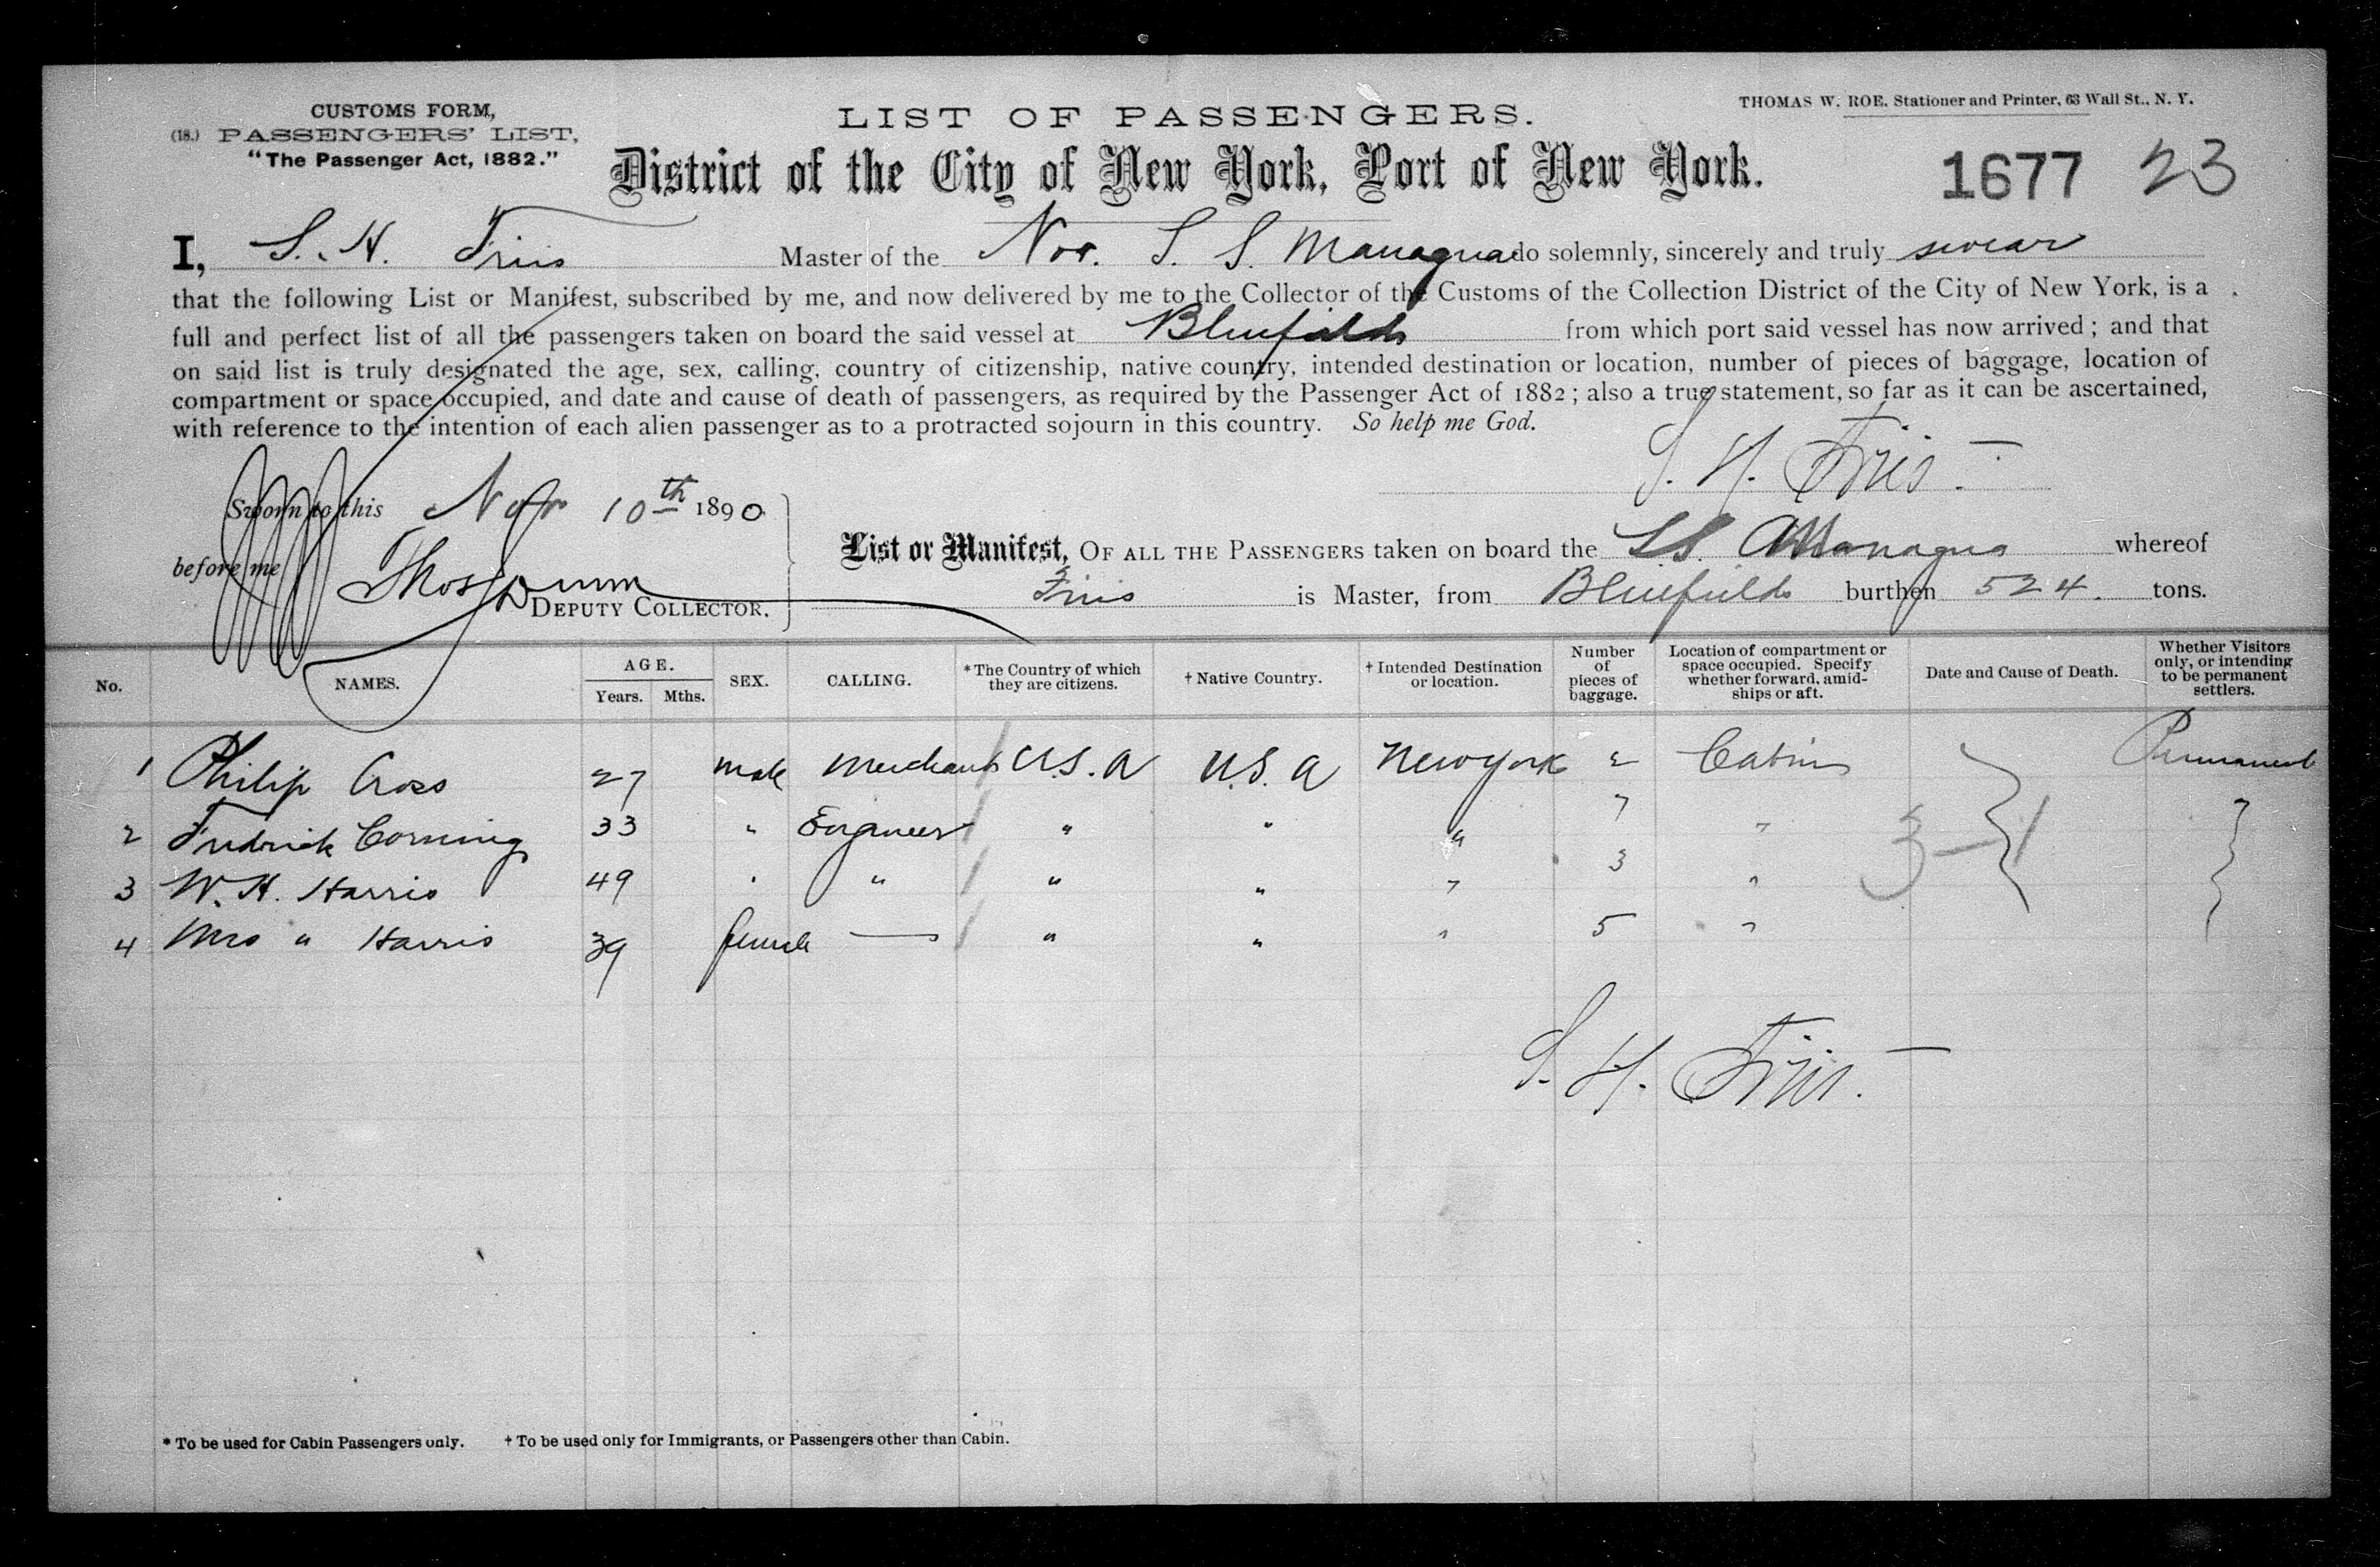 CUSTOMS FORM,
(18.) PASSENGERS' LIST,
"The Passenger Act, 1882."
LIST OF PASSENGERS.
THOMAS W. ROE. Stationer and Printer, 63 Wall St., N. Y.
District of the City of New York, Port of New York.
1677 23
I, S. H. Friis Master of the Nor. S. S. Managua do solemnly, sincerely and truly swear
that the following List or Manifest, subscribed by me, and now delivered by me to the Collector of the Customs of the Collection District of the City of New York, is a
full and perfect list of all the passengers taken on board the said vessel at Bluefields from which port said vessel has now arrived; and that
on said list is truly designated the age, sex, calling, country of citizenship, native country, intended destination or location, number of pieces of baggage, location of
compartment or space occupied, and date and cause of death of passengers, as required by the Passenger Act of 1882; also a true statement, so far as it can be ascertained,
with reference to the intention of each alien passenger as to a protracted sojourn in this country. So help me God.
S. H. Friis.
Sworn to this Nov 10th 1890
before me Thos Dunn
DEPUTY COLLECTOR.
List or Manifest, OF ALL THE PASSENGERS taken on board the SS. Managua whereof
Friis is Master, from Bluefields burthen 524. tons.
No. NAMES. AGE. Years. Mths. SEX. CALLING. *The Country of which they are citizens. † Native Country. † Intended Destination or location. Number of pieces of baggage. Location of compartment or space occupied. Specify whether forward, amid-ships or aft. Date and Cause of Death. Whether Visitors only, or intending to be permanent settlers.
1 Philip Cross 27 male Merchant U.S.A U.S.A New York 2 Cabin Permanent
2 Fredrick Corning 33 " Engineer " " " 7 "
3 W. H. Harris 49 " " " " " 3 "
4 Mrs " Harris 39 female — " " " 5 "
3—1
S. H. Friis.
* To be used for Cabin Passengers only. † To be used only for Immigrants, or Passengers other than Cabin.